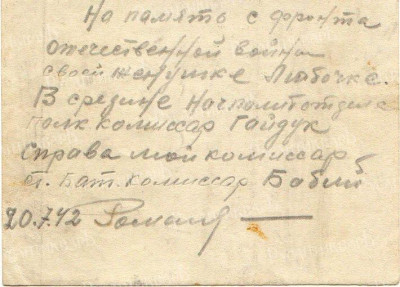 На память с фронта
отечественной войны
своей женушке Любочке.
В средине Начполитотдела
полк комиссар Гайдук
Справа мой комиссар
ст. Бат. комиссар
20.7.42 Роман